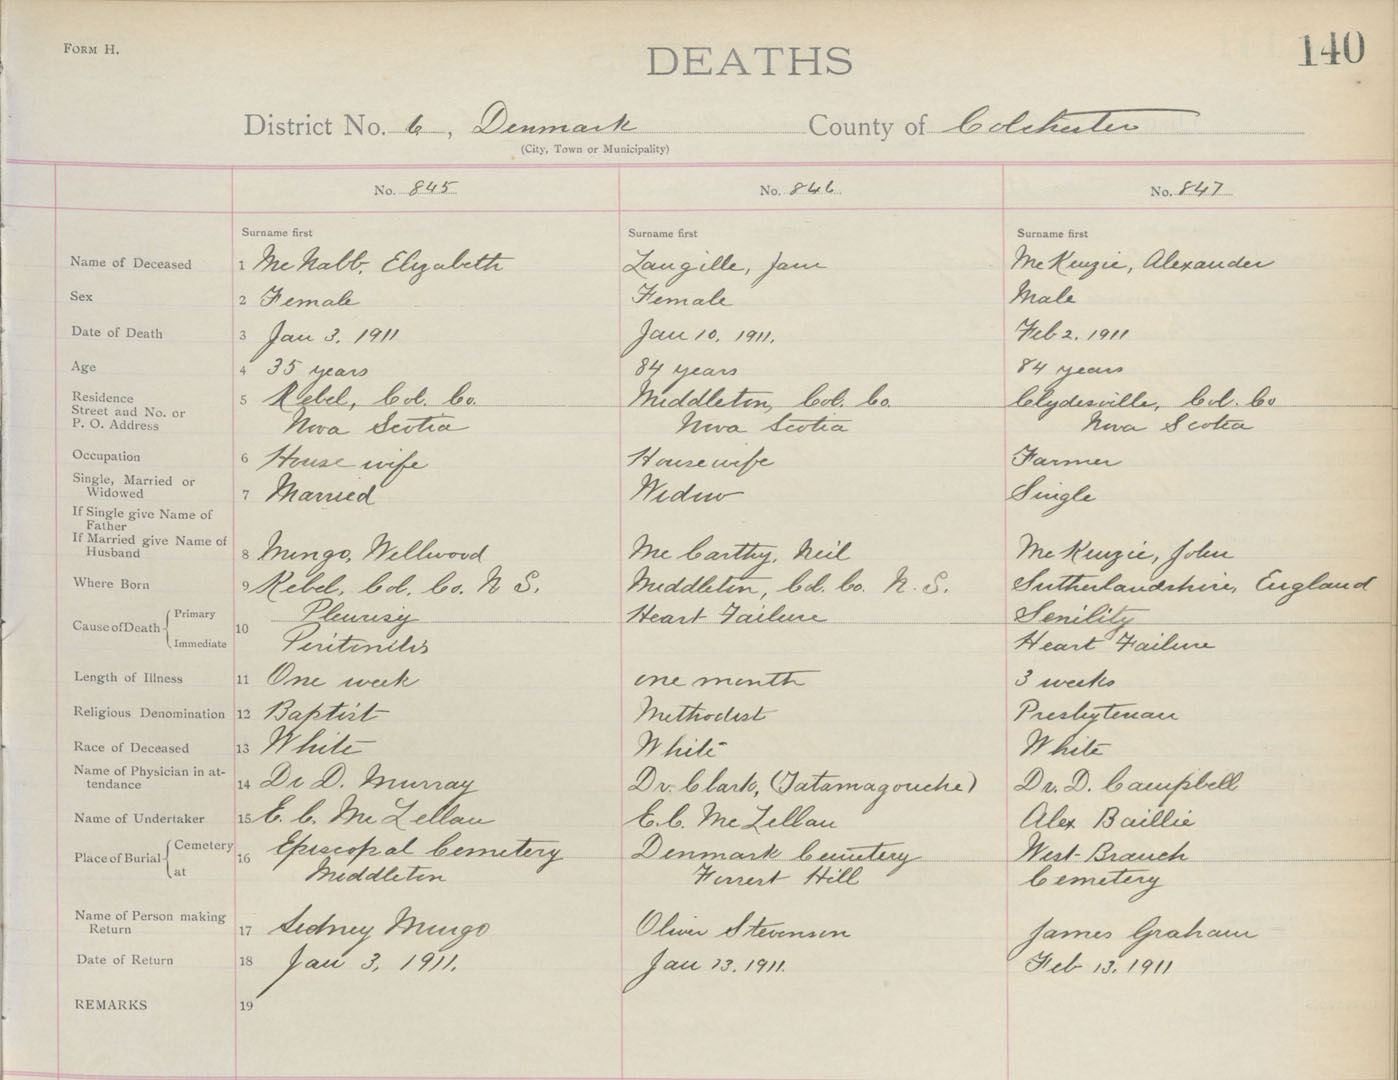 Form H.
DEATHS
140
District No. 6, Denmark County of Colchester
(City, Town or Municipality)
No. 845 No. 846 No. 847
Surname first Surname first Surname first
Name of Deceased 1 McNabb, Elizabeth Langille, Jane McKenzie, Alexander
Sex 2 Female Female Male
Date of Death 3 Jan 3, 1911 Jan 10, 1911. Feb 2, 1911
Age 4 35 years 84 years 84 years
Residence 5 Rebel, Col. Co. Middleton, Col. Co. Clydesville, Col. Co
Street and No. or
P. O. Address Nova Scotia Nova Scotia Nova Scotia
Occupation 6 Housewife Housewife Farmer
Single, Married or
Widowed 7 Married Widow Single
If Single give Name of
Father
If Married give Name of
Husband 8 Mingo, Wellwood McCarthy, Neil McKenzie, John
Where Born 9 Rebel, Col. Co. N S. Middleton, Col. Co. N. S. Sutherlandshire, England
Cause of Death Primary 10 Pleurisy Heart Failure Senility
Immediate Peritonitis Heart Failure
Length of Illness 11 One week one month 3 weeks
Religious Denomination 12 Baptist Methodist Presbyterian
Race of Deceased 13 White White White
Name of Physician in at-
tendance 14 Dr D. Murray Dr. Clark, (Tatamagouche) Dr. D. Campbell
Name of Undertaker 15 E. C. McLellan E. C. McLellan Alex Baillie
Place of Burial Cemetery 16 Episcopal Cemetery Denmark Cemetery West-Branch
at Middleton Forrest Hill Cemetery
Name of Person making
Return 17 Sidney Mingo Oliver Stevenson James Graham
Date of Return 18 Jan 3, 1911. Jan 13, 1911. Feb 13, 1911
REMARKS 19